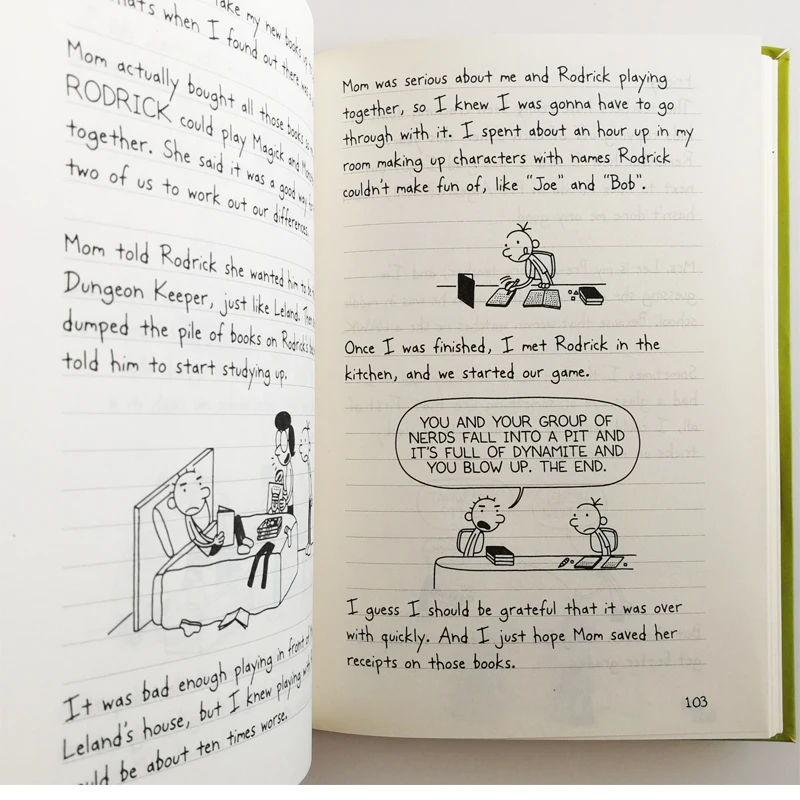 take my new books
that's when I found out there was
Mom actually bought all those books so
RODRICK could play Magick and
together. She said it was a good way to
two of us to work out our differences.
Mom told Rodrick she wanted him to be
Dungeon Keeper, just like Leland. Then
dumped the pile of books on Rodrick's
told him to start studying up.
It was bad enough playing in front of
Leland's house, but I knew playing with
be about ten times worse.
Mom was serious about me and Rodrick playing
together, so I knew I was gonna have to go
through with it. I spent about an hour up in my
room making up characters with names Rodrick
couldn't make fun of, like "Joe" and "Bob".
Once I was finished, I met Rodrick in the
kitchen, and we started our game.
YOU AND YOUR GROUP OF
NERDS FALL INTO A PIT AND
IT'S FULL OF DYNAMITE AND
YOU BLOW UP. THE END.
I guess I should be grateful that it was over
with quickly. And I just hope Mom saved her
receipts on those books.
103